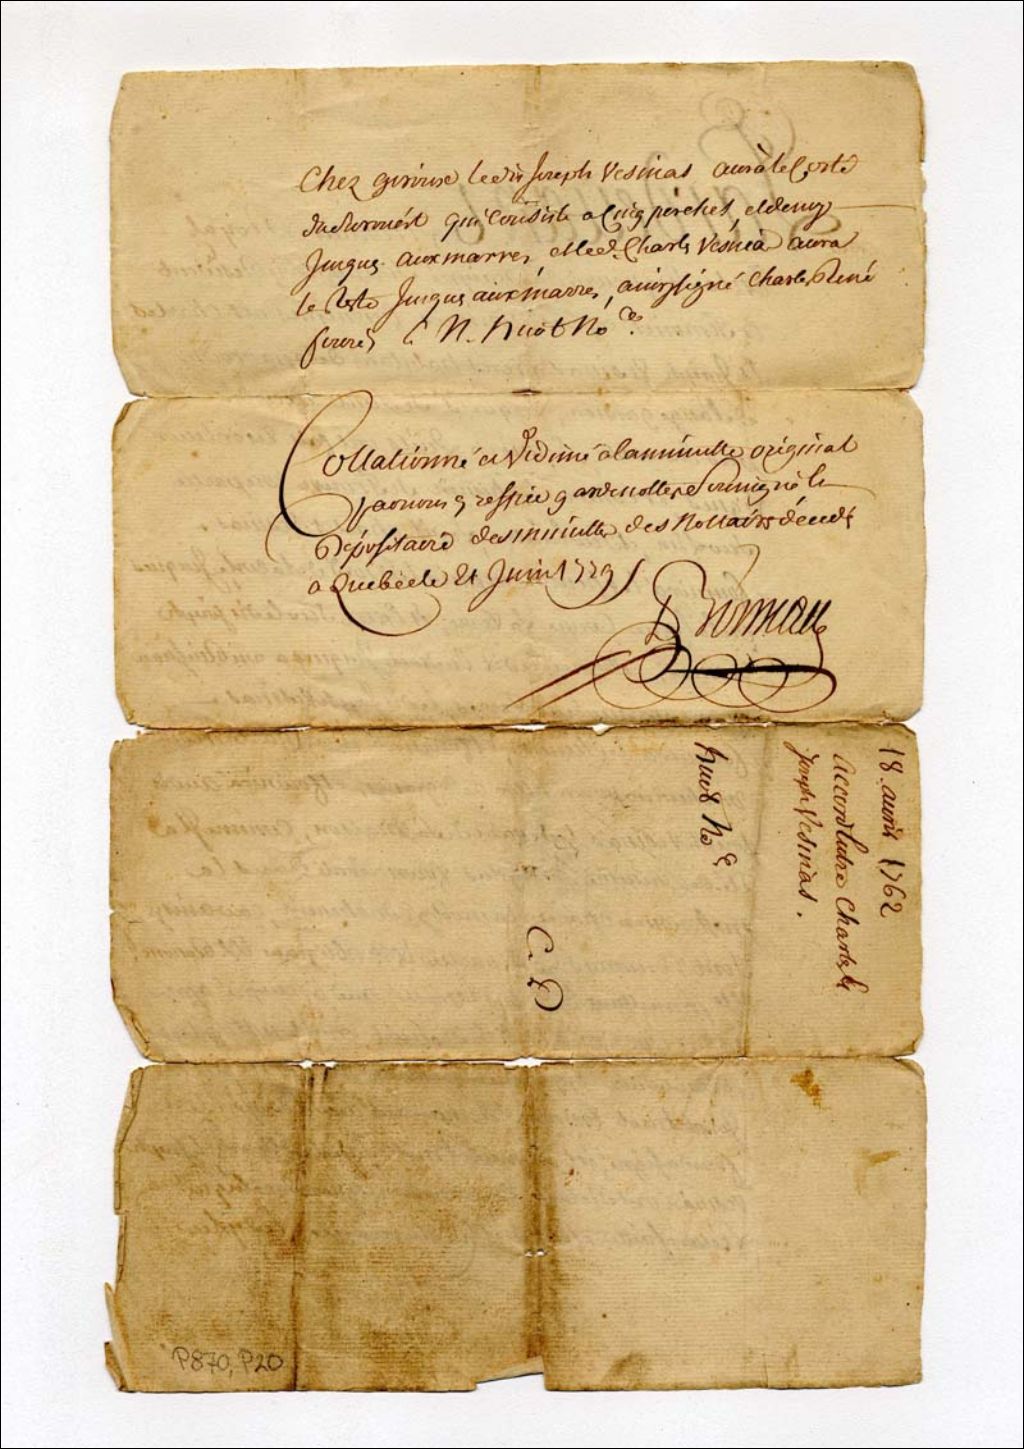 Chez giroux ledit Joseph Vesinas aura le Costé
du Surouést qui Consiste a Cinq perches et demy
Jusques aux marres, et led. Charle Vésina aura
le Reste Jusques aux marres, ainsy signé Charle, René
N. Huot No.re
Collationné et Vidimé a la minutte original
par nous greffier garde nottes Soussigné le
Dépositaire des minuttes des Nottaires décedés
a Quebec le 21 Juin
18. avril 1762
accord Entre Charle &
Joseph Vesinas.
huot No.e
C. D
P870, P20